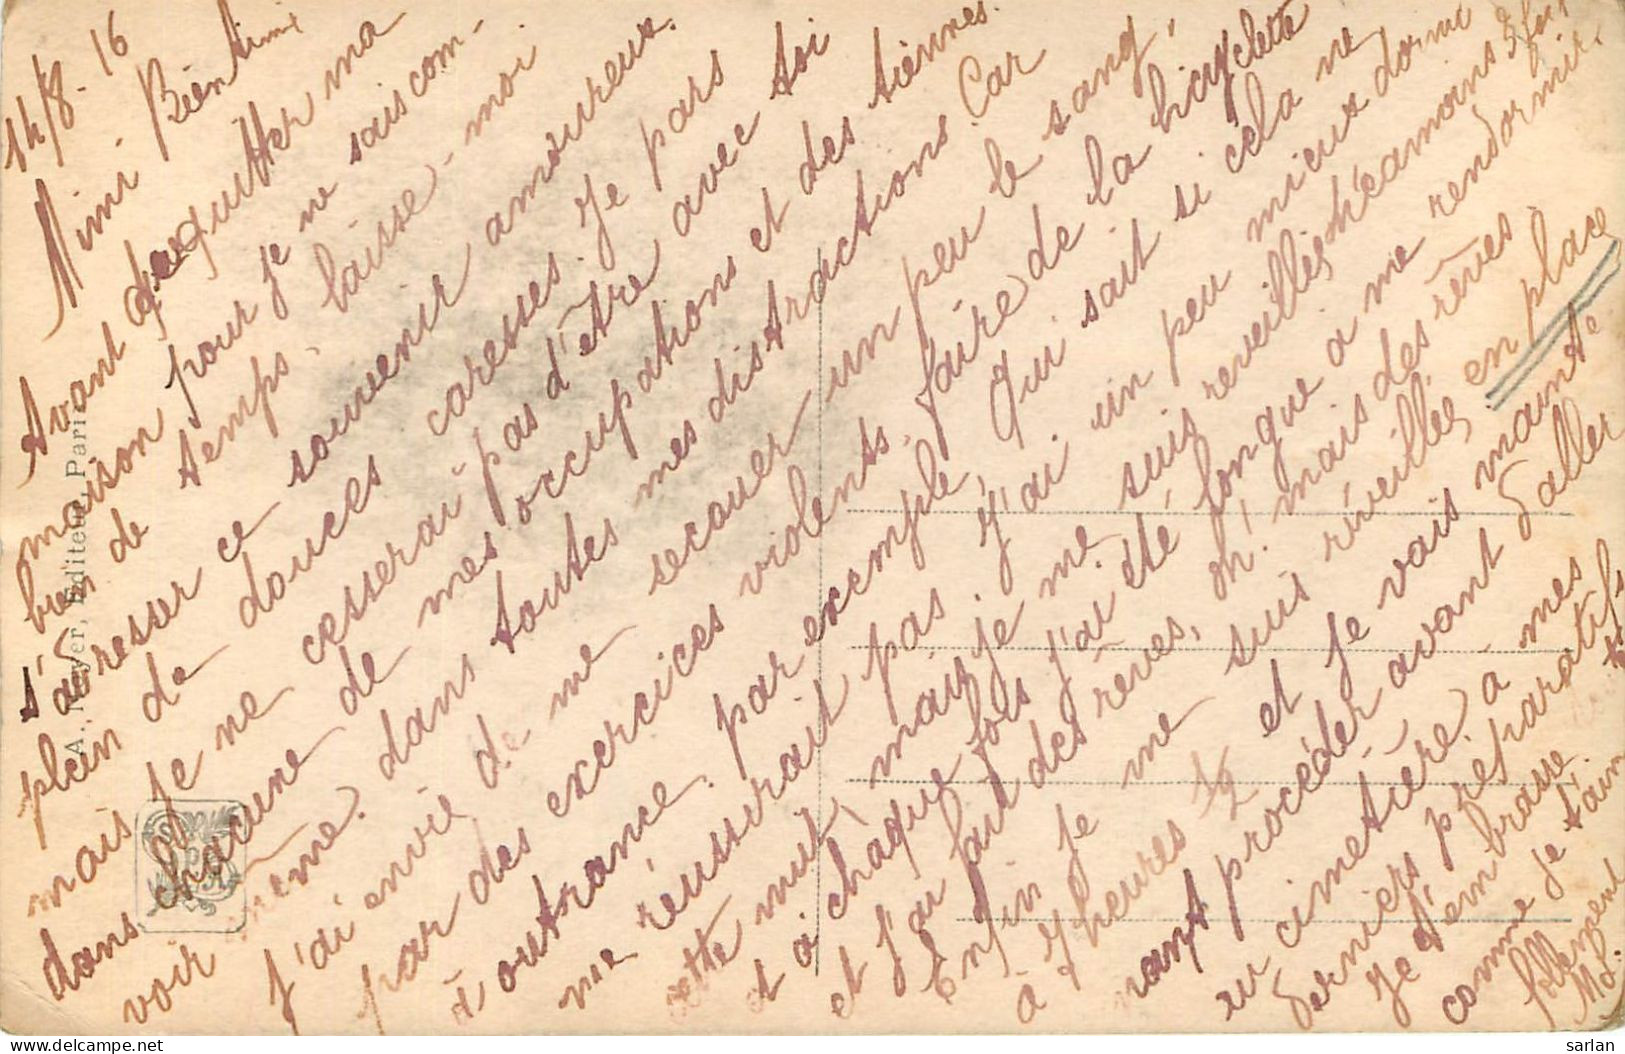 14/8-16
Mimi Bien Aimé
Avant de quitter ma
maison pour je ne sais com-
bien de temps. laisse-moi
t'adresser ce souvenir amoureux.
plein de douces caresses. Je pars
mais je ne cesserai pas d'être avec toi
dans chacune de mes occupations et des tiennes.
voir même. dans toutes mes distractions. Car
j'ai envie de me secouer un peu le sang,
par des exercices violents. faire de la bicyclette
à outrance. par exemple, Qui sait si cela ne
me réussirait pas. J'ai un peu mieux dormi
cette nuit, mais je me suis reveillée néamoins 3 fois
et à chaque fois j'ai été longue a me rendormir.
et j'ai fait des rêves, oh! mais des rêves
Enfin je me suis réveillée en place
à 7 heures 1/2 et je vais mainte
nant procéder avant d'aller
au cimetière. à mes
derniers préparatifs
Je t'embrasse
comme je t'aime
follement
A. Noyer, Editeur, Paris
sarlan